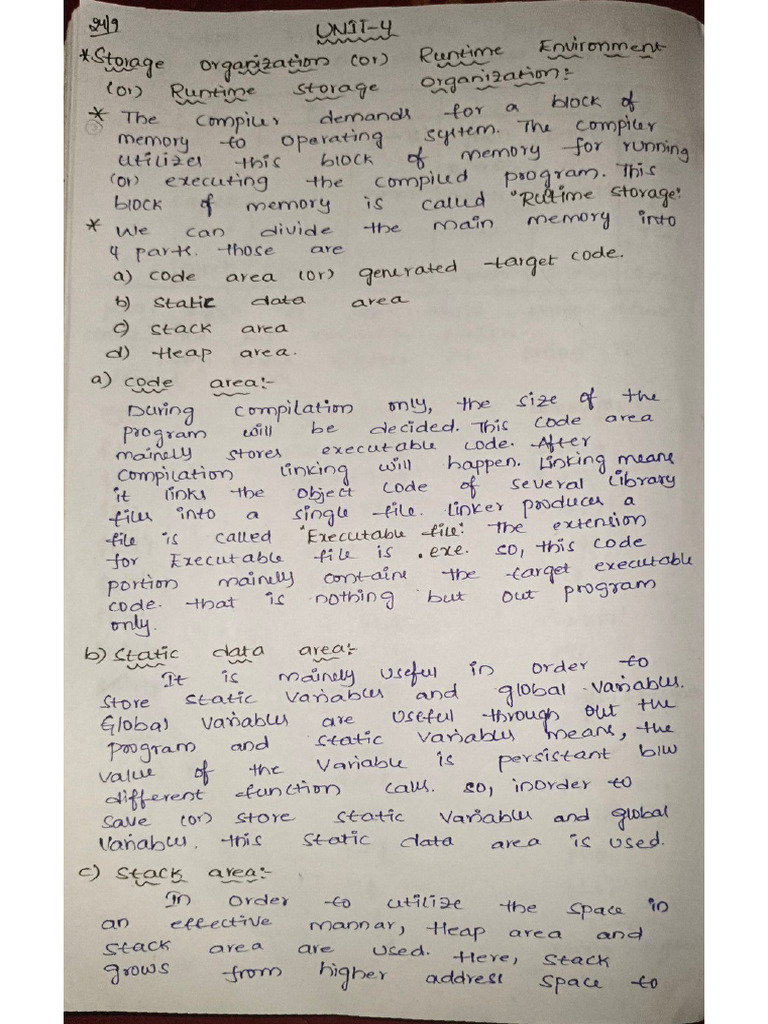 24/9
UNIT-4
*Storage organization (or) Runtime Environment
(or) Runtime storage organization:-
* The compiler demands for a block of
memory to operating system. The compiler
utilizes this block of memory for running
(or) executing the compiled program. This
block of memory is called "Rutime storage".
* We can divide the main memory into
4 parts. those are
a) code area (or) generated target code.
b) static data area
c) stack area
d) Heap area.
a) code area:-
During compilation only, the size of the
program will be decided. This code area
mainely stores executable code. After
compilation linking will happen. Linking means
it links the object code of several library
files into a single file. linker produces a
file is called "Executable file". The extension
for Executable file is .exe. so, this code
portion mainely contains the target executable
code. that is nothing but out program
only.
b) static data area:-
It is mainely useful in order to
store static variables and global variables.
Global variables are useful through out the
program and static variables means, the
value of the variable is persistant b/w
different function calls. so, inorder to
save (or) store static variables and global
variables. this static data area is used.
c) stack area:-
In order to utilize the space in
an effective mannar, Heap area and
stack area are used. Here, stack
grows from higher address space to